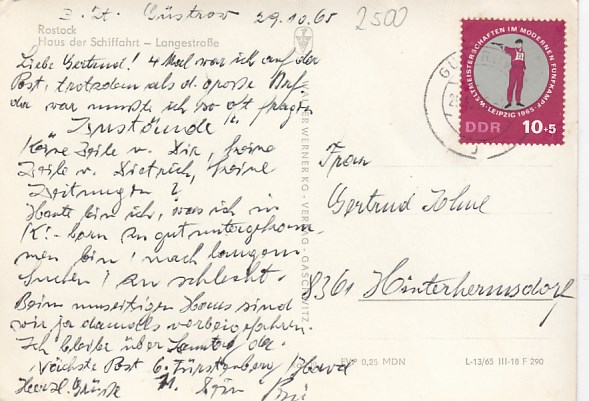 z. Zt. Güstrow 29.10.65
2500
Rostock
Haus der Schiffahrt – Langestraße
Liebe Gertrud! 4 Mal war ich auf der
Post, trotzdem als d. große
da war musste ich so oft fragen
"Zustände".
Keine Zeile v. Dir, keine
Zeile v. Dietrich, keine
Zeitungen?
Heute bin ich, was ich in
K!- born so gut untergekom-
men bin! nach langem
Suchen! so schlecht.
Beim umseitigen Haus sind
wir ja damals vorbeigefahren.
Ich bleibe über Sonntag da.
Nächste Post b. Fürstenberg / Havel
Herzl. Grüße
WELTMEISTERSCHAFTEN IM MODERNEN FÜNFKAMPF
LEIPZIG 1965
DDR 10+5
VERLAG
Frau
Gertrud
8361 Hinterhermsdorf
EVP 0,25 MDN
L-13/65 III-18 F 290